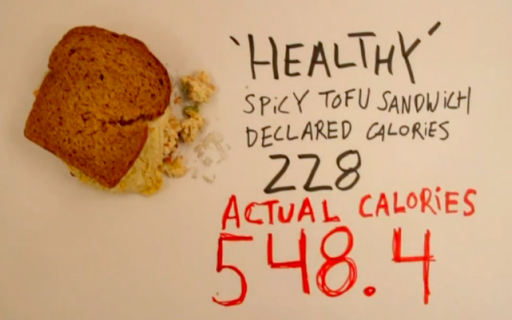 'HEALTHY'
SPiCY TOFU SANDWiCH
DECLARED CALORiES
228
ACTUAL CALORiES
548.4